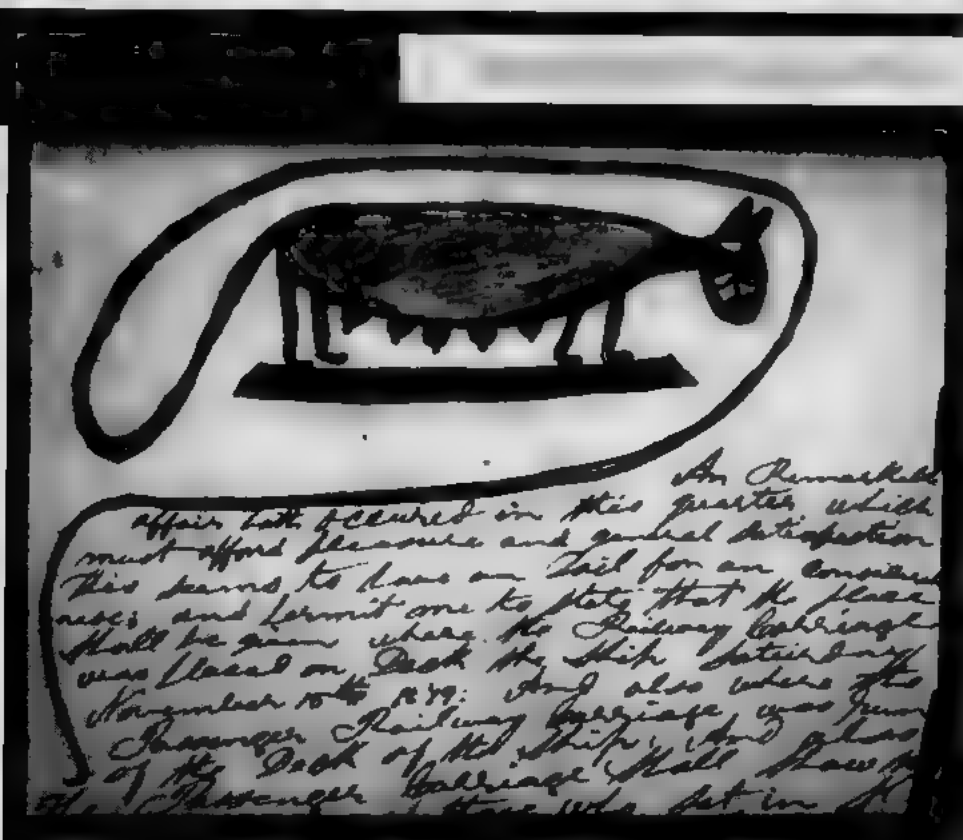 An Remarkabl
affair hath occured in this quarter which
must afford pleasure and general satisfaction
This seems to have an Tail for an
and permit me to state that the place
shall be given where the Railway Carriage
was placed on Deck the Ship Saturday
November 10th And also where the
Passenger Railway Carriage was
of the Deck of the Ship; And also
Passenger Carriage Shall
those who Sat in